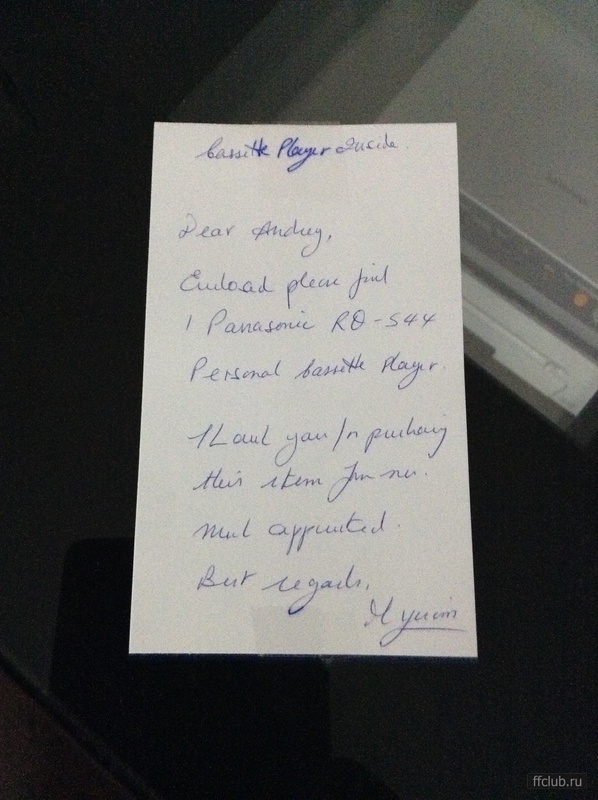 Cassette Player Inside.
Dear Andrey,
Enclosed please find
1 Panasonic RQ-S44
Personal Cassette Player.
Thank you for purchasing
this item from me.
Much appreciated.
Best regards,
ffclub.ru